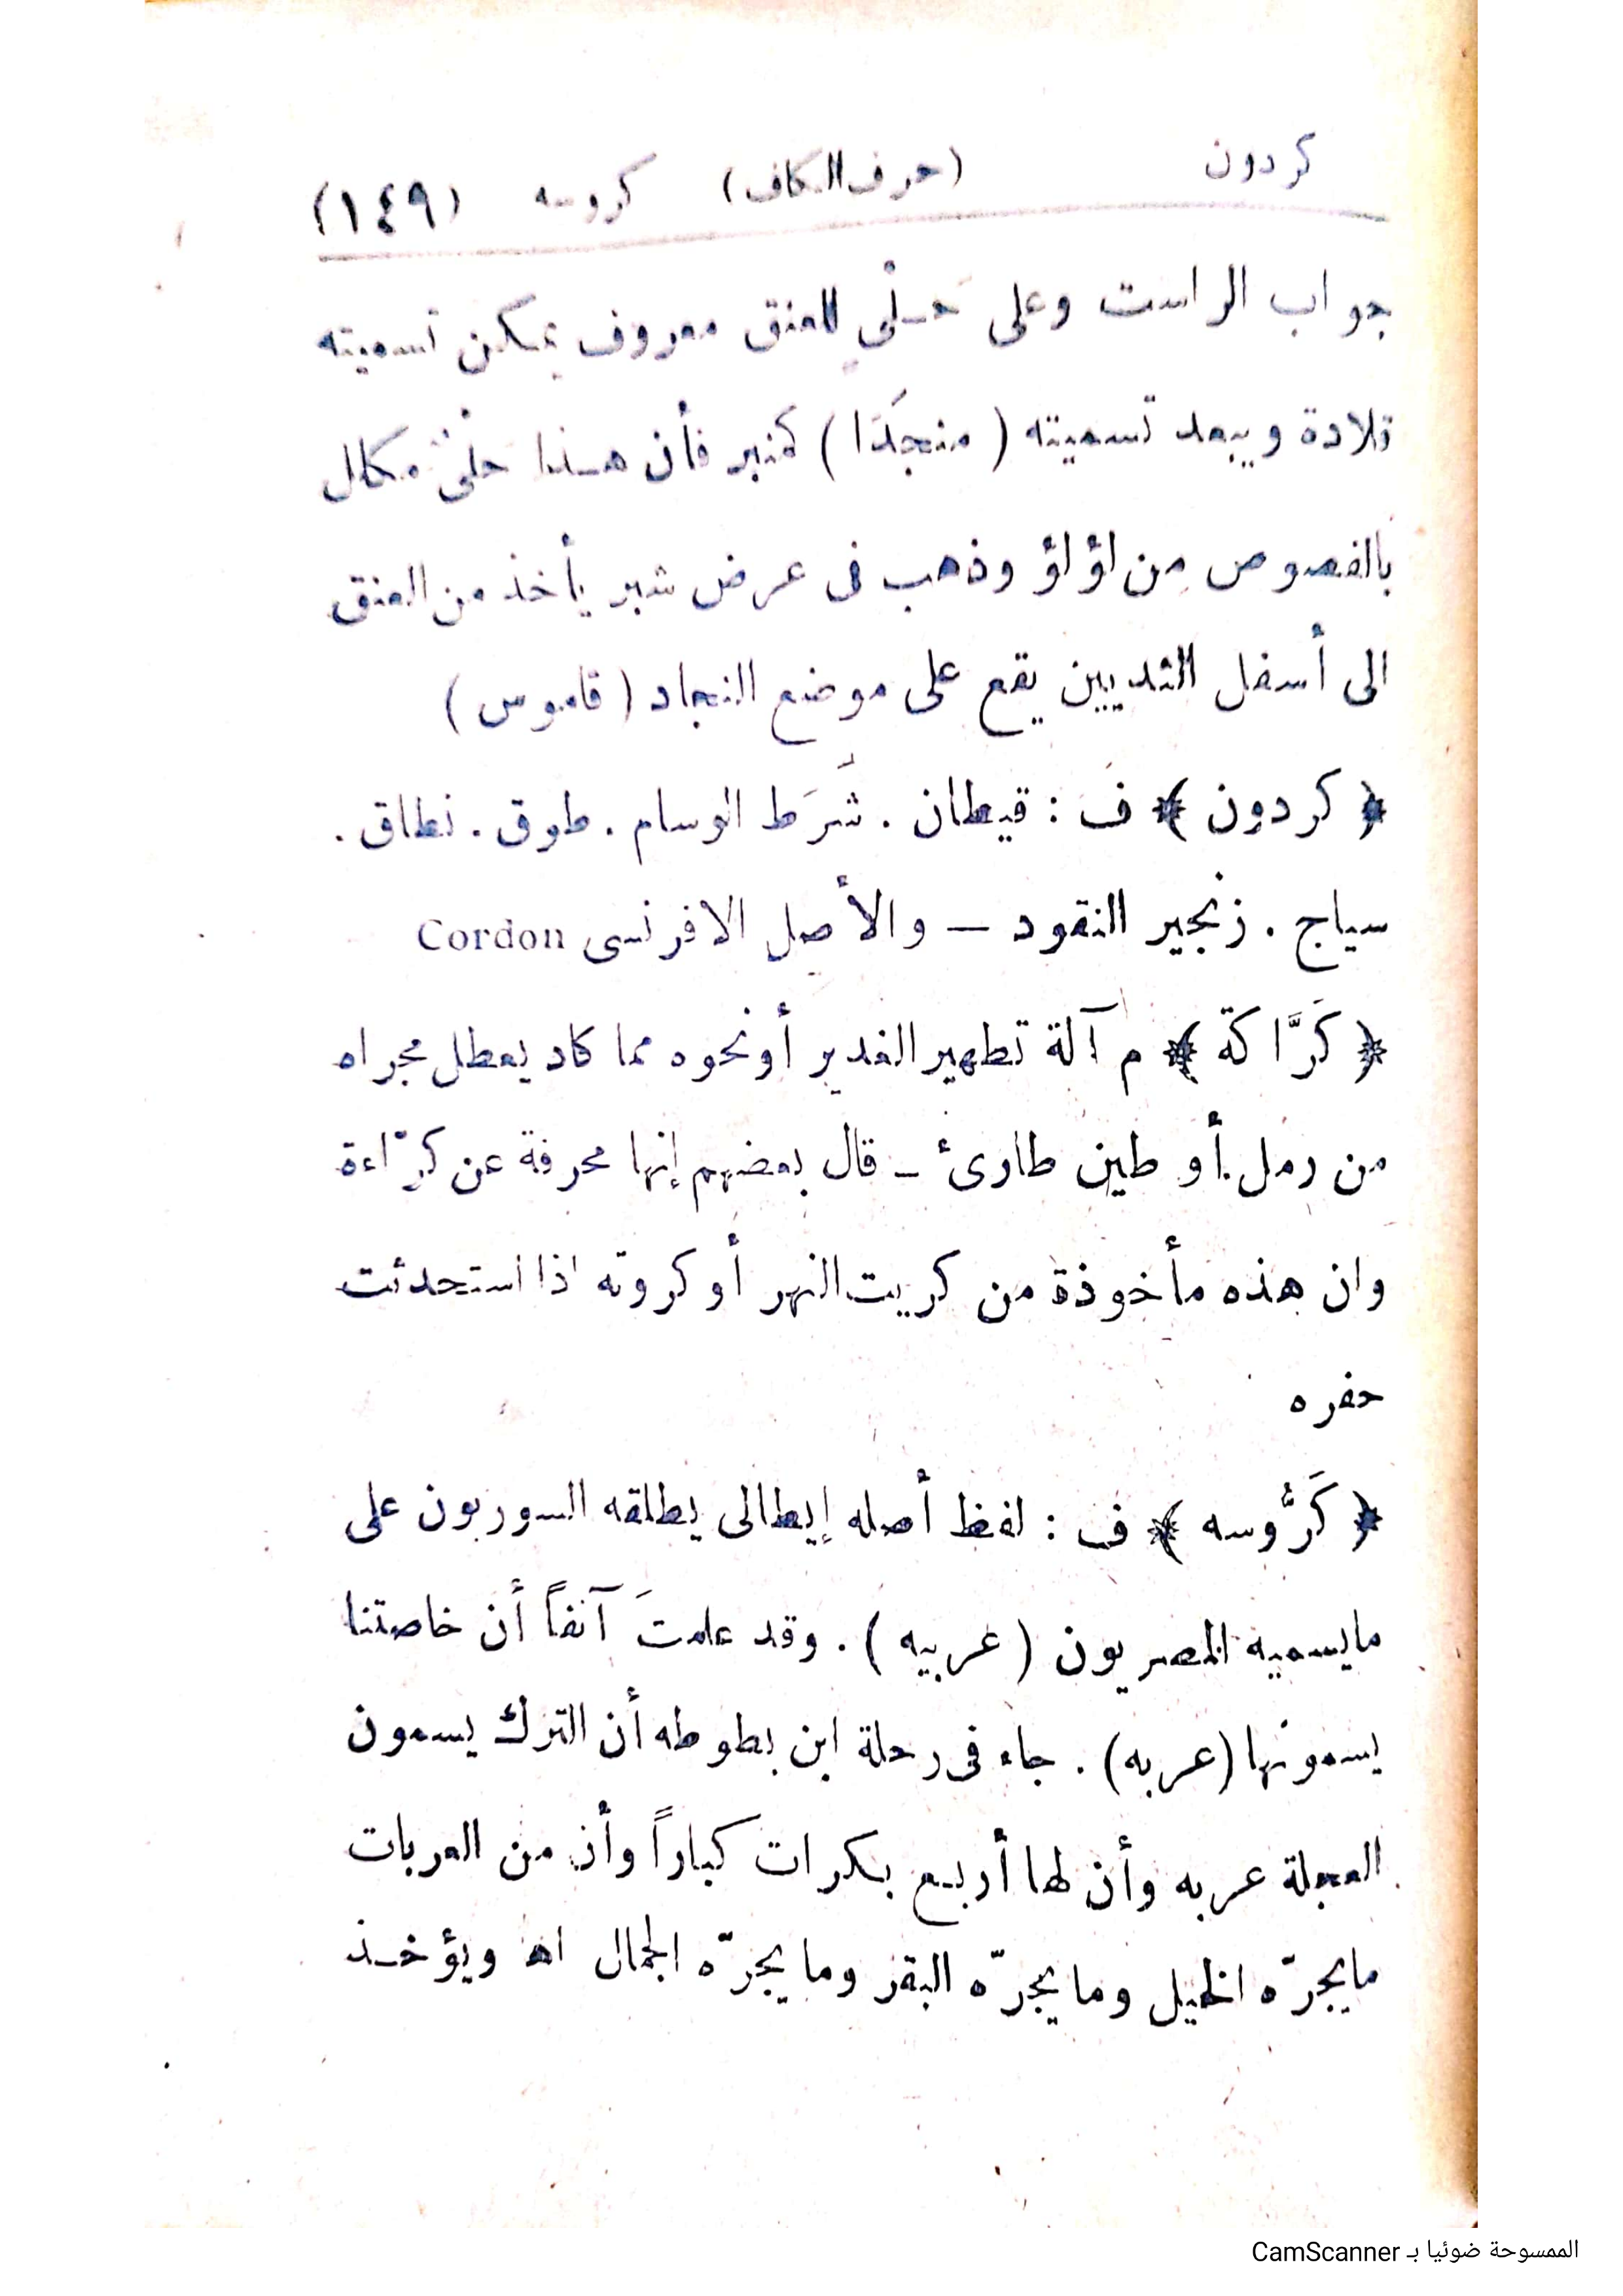 كردون (حرف الكاف) كروسه (١٤٩)
جواب الراست وعلى حَـلْي للعنق معروف يمكن تسميته
قلادة ويبعد تسميته ( منجَدَا ) كمنبر فأن هـذا حلْىٌ مكلل
بالفصوص من لؤلؤ وذهب فى عرض شبر يأخذ من العنق
الى أسفل الثديين يقع على موضع النجاد ( قاموس )
﴿ كردون ﴾ ف : قيطان . شَرَط الوسام . طوق . نطاق .
سياج . زنجير النقود — والأصل الافرنسى Cordon
﴿ كَرَّاكة ﴾ م آلة تطهير الغدير أونحوه مما كاد يعطل مجراه
من رمل أو طين طارئ ـ قال بعضهم إنها محرفة عن كرّاءة
وان هذه مأخوذة من كريت النهر أو كروته اذا استحدثت
حفره
﴿ كَرُّوسه ﴾ ف : لفظ أصله إيطالى يطلقه السوريون على
مايسميه المصريون ( عربيه ) . وقد علمتَ آنفاً أن خاصتنا
يسمونها (عربه) . جاء فى رحلة ابن بطوطه أن الترك يسمون
العجلة عربه وأن لها أربـع بـكرات كباراً وأن من العربات
مايجرّه الخيل ومايجرّه البقر ومايجرّه الجمال اه ويؤخـذ
الممسوحة ضوئيا بـ CamScanner